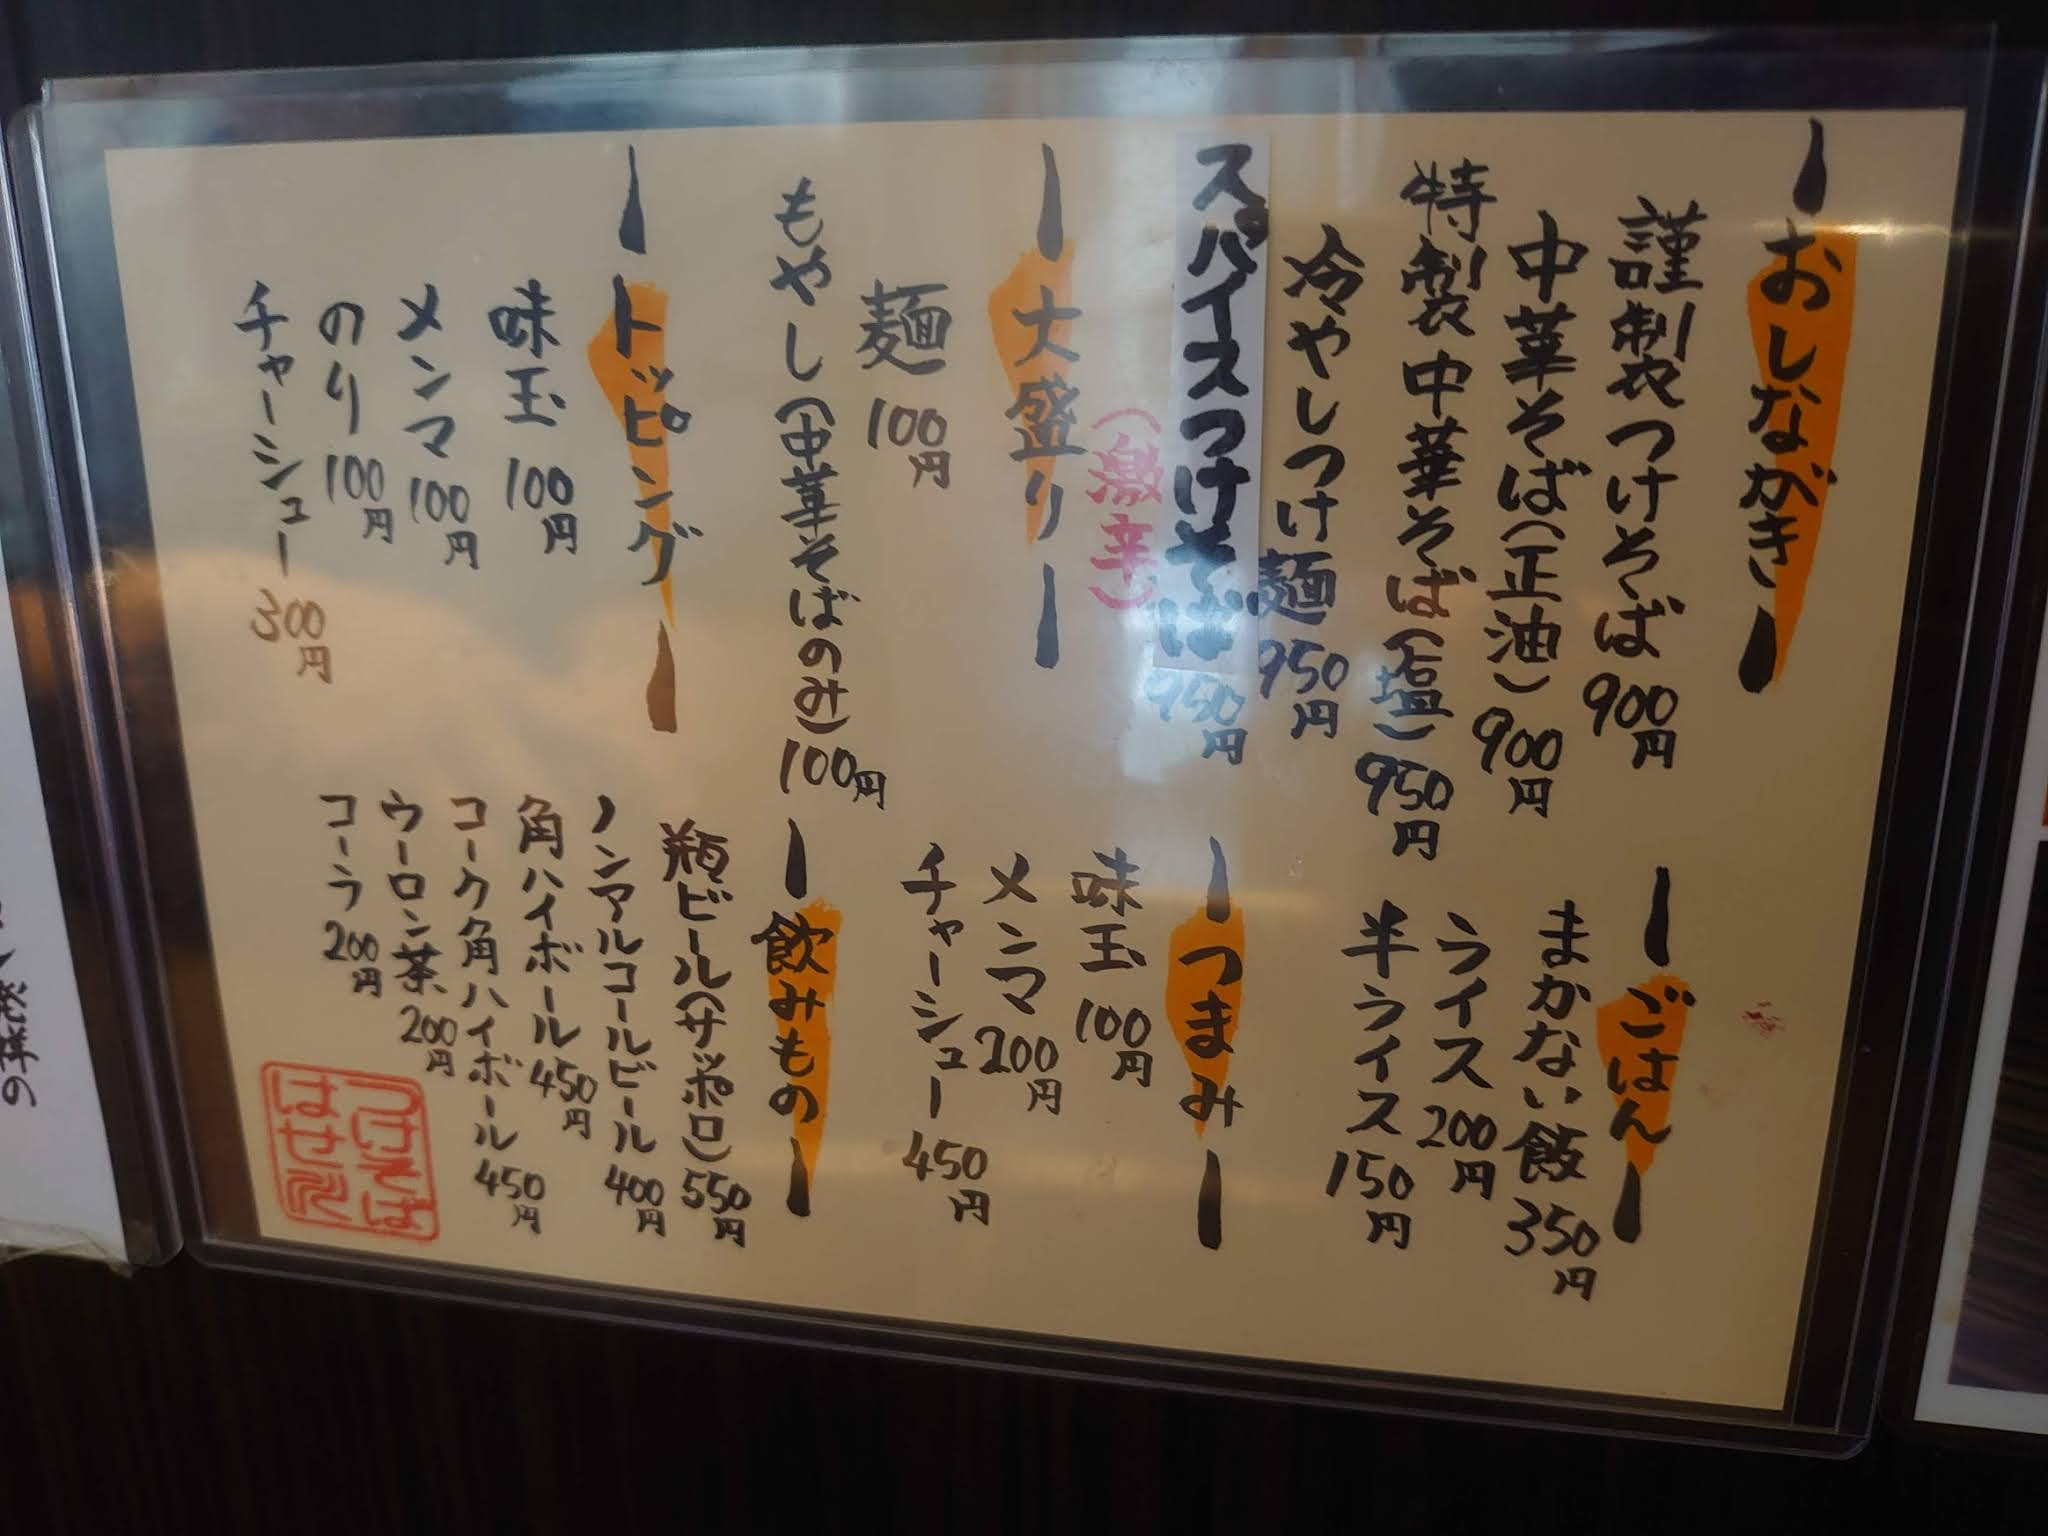 おしながき
謹製つけそば 900円
中華そば(正油) 900円
特製中華そば(塩) 950円
冷やしつけ麺 950円
スパイスつけそば 950円
(激辛)
大盛り
麺 100円
もやし(中華そばのみ) 100円
トッピング
味玉 100円
メンマ 100円
のり 100円
チャーシュー 300円
ごはん
まかない飯 350円
ライス 200円
半ライス 150円
つまみ
味玉 100円
メンマ 200円
チャーシュー 450円
飲みもの
瓶ビール(サッポロ) 550円
ノンアルコールビール 400円
角ハイボール 450円
コーク角ハイボール 450円
ウーロン茶 200円
コーラ 200円
つけそば
はせ